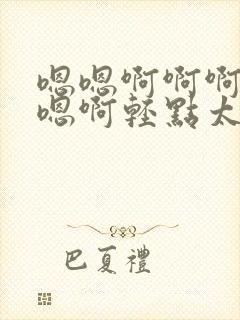 嗯嗯啊啊啊
嗯啊輕點太
巴夏禮